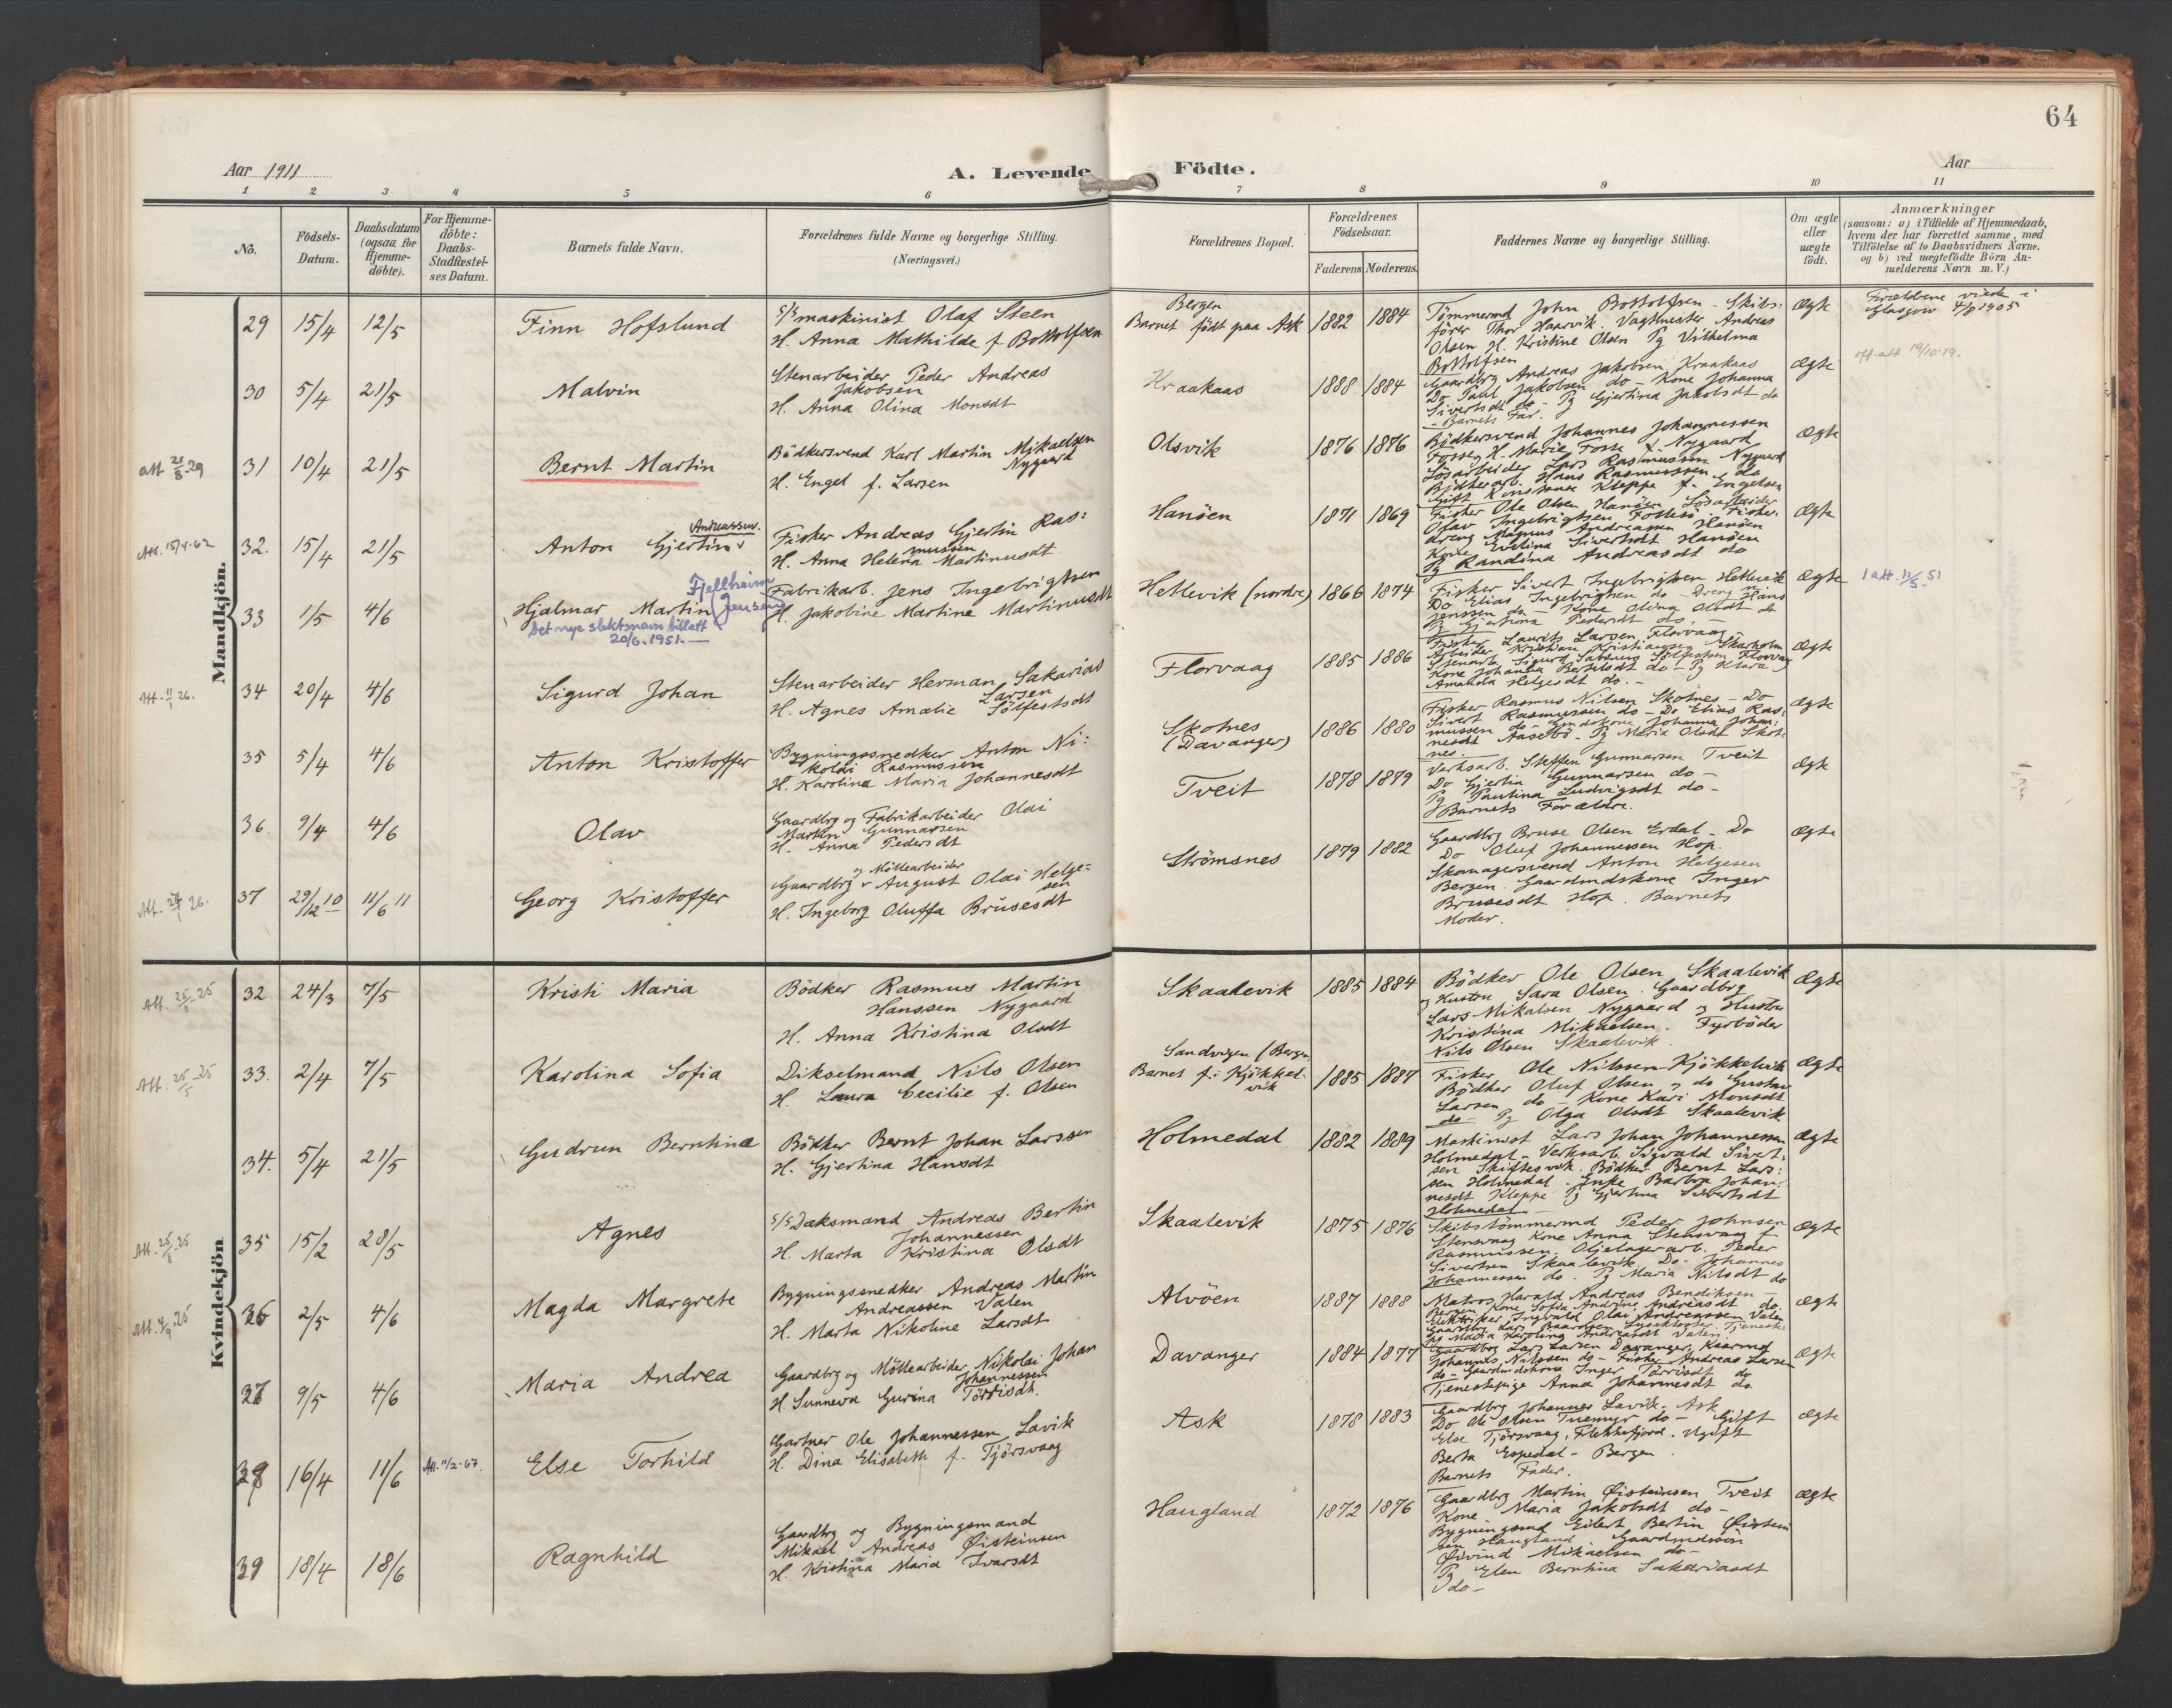 64
Aar 1911
A. Levende Födte.
Aar
1 2 3 4 5 6 7 8 9 10 11
No.
Födsels-Datum.
Daabsdatum (ogsaa for Hjemme-döbte).
For Hjemme-döbte: Daabs-Stadfæstel-ses Datum.
Barnets fulde Navn.
Forældrenes fulde Navne og borgerlige Stilling.
(Næringsvei.)
Forældrenes Bopæl.
Forældrenes Födselsaar.
Faderens. Moderens.
Faddernes Navne og borgerlige Stilling.
Om ægte eller uægte födt.
Anmærkninger
(saasom: a) i Tilfælde af Hjemmedaab,
hvem der har forrettet samme, med
Tilföielse af to Daabsvidners Navne.
og b) ved uægtefödte Börn An-
melderens Navn m. V.)
Mandkjön.
29 15/4 12/5
Finn Hofslund
S/S maskinist Olaf Steen
H. Anna Mathilde f Bottolfsen
Bergen
Barnet født paa Ask
1882 1884
Tömmermd John Bottolfsen - Skibs-
förer Thor Haarvik. Vagtmester Andreas
Olsen H. Kristine Olsen Pg Vilhelma
Bottolfsen
Ægte
Forældrene viede i
Glasgow 4/8 1905
30 5/4 21/5
Malvin
Stenarbeider Peder Andreas
Jakobsen
H. Anna Olina Monsdt
Kraakaas
1888 1884
Gaardbrg Andreas Jakobsen Kraakaas
Do Paul Jakobsen do - Kone Johanna
Sivertsdt do - Pg Gjertina Jakobsdt do
- Barnets Far.
Ægte
Off. att 19/10-19.
att 21/8-29
31 10/4 21/5
Bernt Martin
Bödkersvend Karl Martin Mikaelsen
Nygaard
H. Engel f. Larsen
Olsvik
1876 1876
Bödkersvend Johannes Johannessen
Fosse, H. Marie Fosse f Nygaard
Lösarbeider Lars Rasmussen Nygaard
Bödkerarb. Hans Rasmussen do
Gift Konstanse Kleppe f. Engelsen
Ægte
Att. 15/4-62
32. 15/4 21/5
Andreassen.
Anton Gjertin v
Fisker Andreas Gjertin Ras:
mussen
H. Anna Helena Martinusdt
Hanöen
1871 1869
Fisker Ole Olsen Hanöen Lösarbeider
Olav Ingebrigtsen Follesö. Fisker-
dreng Magnus Andreassen Hanöen
Kone Evelina Sivertsdt Hanöen
Pg Randina Andreasdt do
Ægte
33 1/5 4/6
Fjellheim
Hjalmar Martin (Jensen)
Det nye slektsnavn tillatt
20/6. 1951.—
Fabrikarb. Jens Ingebrigtsen
H. Jakobine Martine Martinusdt
Hetlevik (nordre)
1866 1874
Fisker Sivert Ingebrigtsen Hetlevik
Do Elias Ingebrigtsen do - Dreng Hans
Jenssen do - Kone Olina Olsdt do
Pg Gjertina Pedersdt do. -
Ægte
1 att. 11/5. 51
Att. 11/1 26.
34 20/4 4/6
Sigurd Johan
Stenarbeider Herman Sakarias
Larsen
H. Agnes Amalie Sölfestsdt
Florvaag
1885 1886
Fisker Laurits Larsen Florvaag -
Arbeider Kristian Kristiansen Skarholm
Stenarb. Sigurd Severin Sölfestsen Florvaag
Kone Johanna Bertilsdt do - Pg Klara
Amanda Helgesdt do. -
Ægte
35 5/4 4/6
Anton Kristoffer
Bygningssnedker Anton Ni:
kolai Rasmussen
H. Karolina Maria Johannesdt
Skotnes
(Davanger)
1886 1880
Fisker Rasmus Nilsen Skotnes - Do
Sivert Rasmussen do - Do Elias Ras:
mussen do - Gmdskone Johanna Johan:
nesdt Aasebö. Pg Maria Olsdt Skot:
nes.
Ægte
36. 9/4 4/6
Olav
Gaardbrg og Fabrikarbeider Olai
Martin Gunnarsen
H. Anna Pedersdt
Tveit
1878 1879
Verksarb. Steffen Gunnarsen Tveit
Do Gjertin Gunnarsen do -
Pg Paulina Ludvigsdt do -
Barnets Forældre.
Ægte
Att. 27/1 26.
37 29/12 10 11/6 11
Georg Kristoffer
og Möllearbeider
Gaardbrg v August Olai Helge-
sen
H. Ingeborg Oluffa Brusesdt
Strömsnes
1879 1882
Gaardbrg Bruse Olsen Erdal - Do
Do Oluf Johannessen Hop.
Skomagersvend Anton Helgesen
Bergen. Gaardmdskone Inger
Brusesdt Hop. Barnets
Moder.
Ægte
Kvindekjön
Att. 25/5 25
32 24/3 7/5
Kristi Maria
Bödker Rasmus Martin
Hanssen Nygaard
H. Anna Kristina Olsdt
Skaalevik
1885 1884
Bödker Ole Olsen Skaalevik
og Hustru Sara Olsen. Gaardbrg
Lars Mikalsen Nygaard og Hustru
Kristina Mikaelsen. Fyrböder
Nils Olsen Skaalevik.
Ægte
Att. 25/5-25
33. 2/4 7/5
Karolina Sofia
Dikselmand Nils Olsen
H. Laura Cecilie f. Olsen
Sandvigen (Bergen
Barnet f. Kjökkel-
vik
1885 1887
Fisker Ole Nilssen Kjökkelvik
Bödker Oluf Olsen og do Gustav
Larsen do - Kone Kari Monsdt
do - Pg Olga Olsdt Skaalevik
Ægte
34. 5/4 21/5
Gudrun Berntina
Bödker Bernt Johan Larssen
H. Gjertina Hansdt
Holmedal
1882 1889
Maskinist Lars Johan Johannessen
Holmedal - Verksarb. Sigvald Sivert:
sen Skiftesvik. Bödker Bernt Lars:
sen Holmedal. Enke Barbra Johan:
nesdt Kleppe Pg Gjertina Sivertsdt
Holmedal
Ægte
Att. 25/8-25
35 15/2 28/5
Agnes
S/S Dæksmand Andreas Bertin
Johannessen
H. Marta Kristina Olsdt
Skaalevik
1875 1876
Skibstömmermd Peder Johnsen
Stensvaag Kone Anna Stensvaag f
Rasmussen. Oljelagerarb. Peder
Sivertsen Skaalevik. Do. Johannes
Johannessen do. Pg Maria Nilsdt do
Ægte
Att. 4/9-25
36 2/5 4/6
Magda Margrete
Bygningssnedker Andreas Martin
Andreassen Valen
H. Marta Nikoline Larsdt
Alvöen
1887 1888
Matros Harald Andreas Bendiksen -
Bergen Kone Sofia Andrine Andreasdt do
Elektriker Ingvald Olai Andreassen Valen
Pg Maria Karoline Andreasdt Valen.
Ægte
37 9/5 4/6
Maria Andrea
Gaardbrg og Möllearbeider Nikolai Johan
Johannessen
H. Sunneva Gurina Törrisdt.
Davanger
1884 1877
Gaardbrg Lars Larsen Davanger, Kaarmd
Johannes Nilssen do - Fisker Andreas Larsen
do - Gaardmdskone Inger Törrisdt do
Tjenestepige Anna Johannesdt do.
Ægte
38 16/4 11/6 Att. 11/2-67.
Else Torhild
Gartner Ole Johannessen Lavik
H. Dina Elisabeth f. Tjörsvaag
Ask
1878 1883
Gaardbrg Johannes Lavik - Ask
Do Ole Olsen Tuemyr do - Gift
Else Tjörsvaag, Flekkefjord. Ugift
Berta Espedal - Bergen.
Barnets Fader.
Ægte
39 18/4 18/6
Ragnhild
Gaardbrg og Bygningsmand
Mikael Andreas Øisteinsen
H. Kristina Maria Ivarsdt
Haugland
1872 1876
Gaardbrg Martin Øisteinsen Tveit
Kone Maria Jakobsdt do -
Bygningsmd Eilert Bertin Øistein
sen Haugland Gaardmdssön
Øivind Mikaelsen do -
Pg Elen Berntina Sakariasdt
do -
Ægte